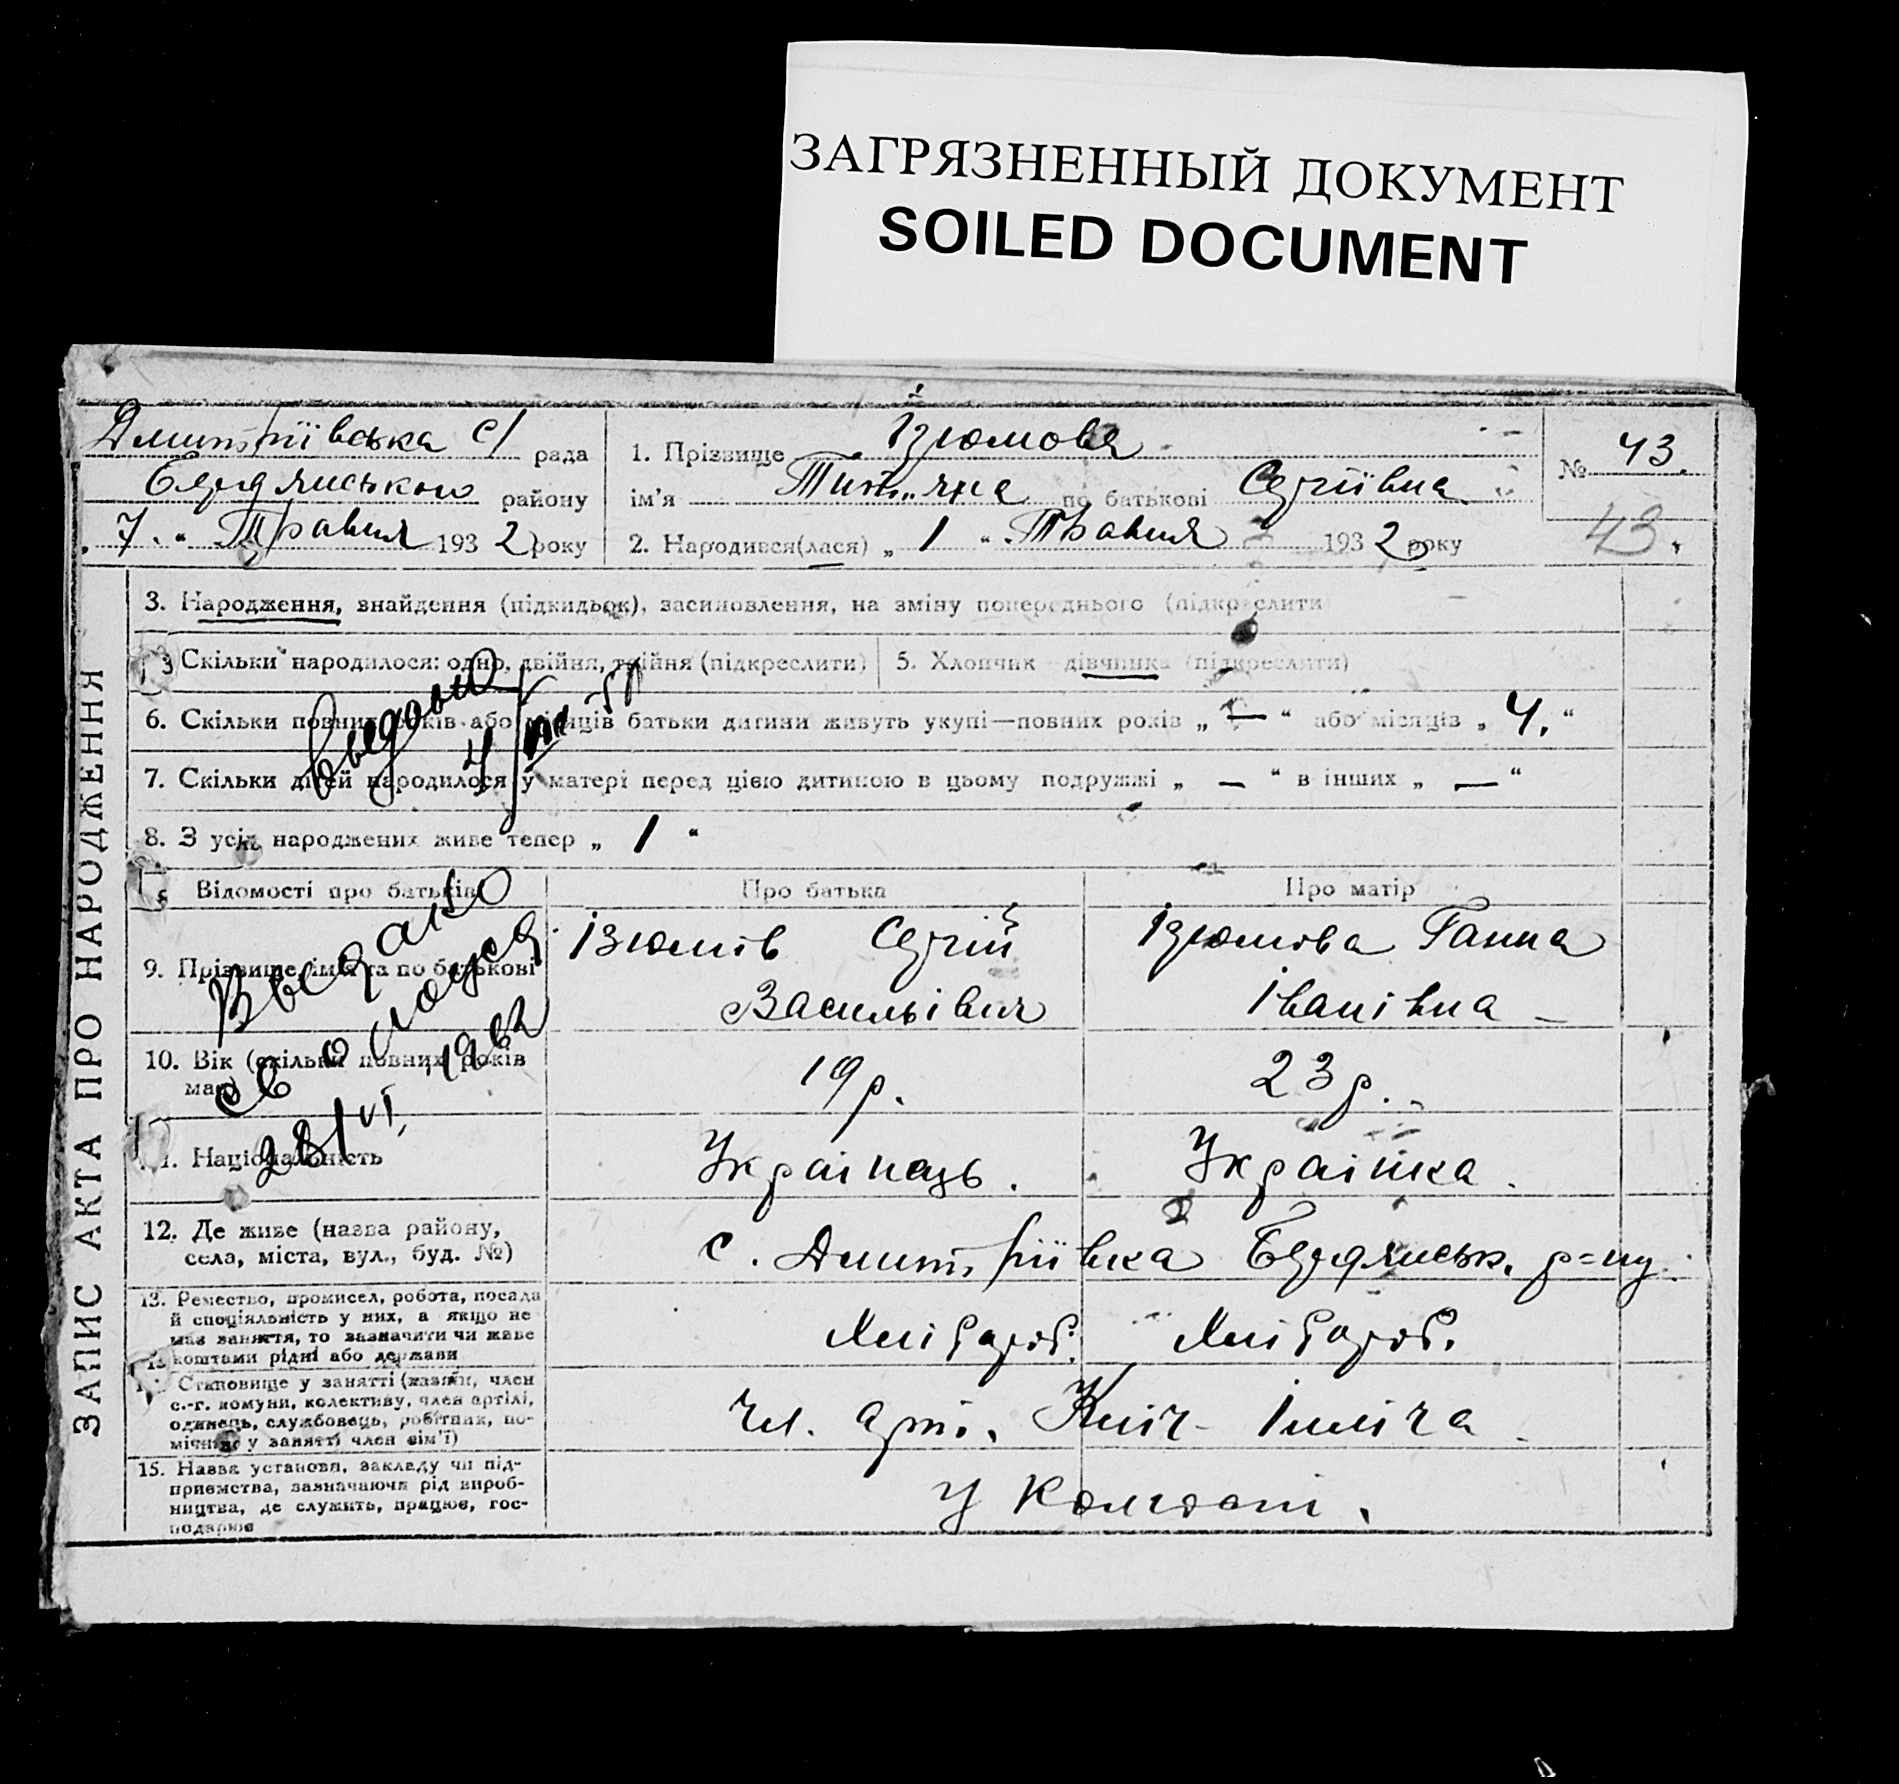 ЗАГРЯЗНЕННЫЙ ДОКУМЕНТ
SOILED DOCUMENT
Дмитріївська с/ рада
Бердянського району
„ 7. “ Травня 1932 року
1. Прізвище Ізюмова
ім'я Титяна по батькові Сергіївна
2. Народився(лася) „ 1 “ Травня 1932 року
№ 43.
43.
ЗАПИС АКТА ПРО НАРОДЖЕННЯ
3. Народження, знайдення (підкидьок), засиновлення, на зміну попереднього (підкреслити
Скільки народилося: одно, двійня, трійня (підкреслити)
5. Хлопчик дівчинка (підкреслити)
6. Скільки повних років або місяців батьки дитини живуть укупі—повних років „ — “ або місяців „ 4. “
7. Скільки дітей народилося у матері перед цією дитиною в цьому подружжі „ — “ в інших „ — “
8. З усіх народжених живе тепер „ 1 “
Выдано
Відомості про батьків
Про батька
Про матір
9. Прізвище, ім'я та по батькові
Ізюмів Сергій
Васильівич
Ізюмова Ганна
Іванівна
Выдано
28/VI. 1962
10. Вік (скільки повних років має)
19 р.
23 р.
11. Національність
Українець.
Українка.
12. Де живе (назва району,
села, міста, вул., буд. №)
с. Дмитріївка Бердянськ. р=ну
13. Ремество, промисел, робота, посада
й спеціяльність у них, а якщо не
має заняття, то зазначити чи живе
коштами рідні або держави
Хлібороб.
Хлібороб.
Становище у занятті (хазяїн, член
с.-г. комуни, колективу, член артілі,
одинець, службовець, робітник, по-
мічник у занятті член сім'ї)
чл. арт. Клич Ілліча
15. Назва установи, закладу чи під-
приємства, зазначаючи рід вироб-
ництва, де служить, працює, гос-
подарює
у колгоспі.